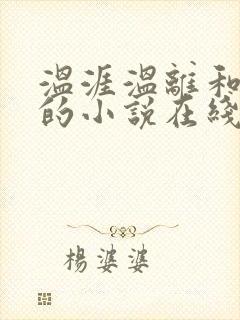 温涯温離和
的小說在綫
楊婆婆